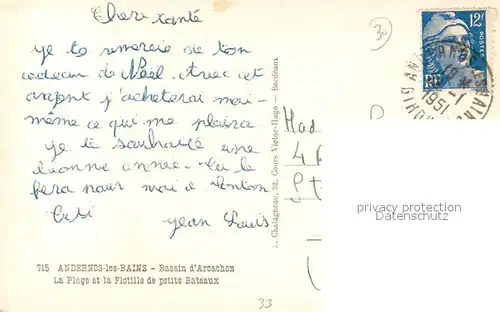 Chere tante
je te remercie de ton
cadeau de Noël. Avec cet
argent j'acheterai moi-
même ce qui me plaira
je te souhaite une
bonne année.
fera pour moi a tonton
jean Louis
715 ANDERNOS-les-BAINS - Bassin d'Arcachon
La Plage et la Flotille de petits Bateaux
33
30
L. Chatagneau, 92, Cours Victor-Hugo - Bordeaux
12F
POSTES
RF
1951
privacy protection
Datenschutz